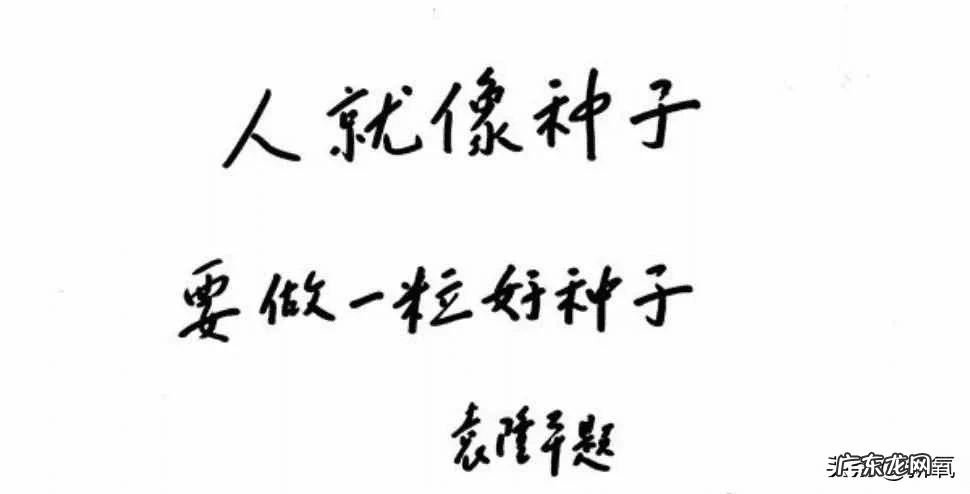 人就像种子
要做一粒好种子
袁隆平题
广东龙网